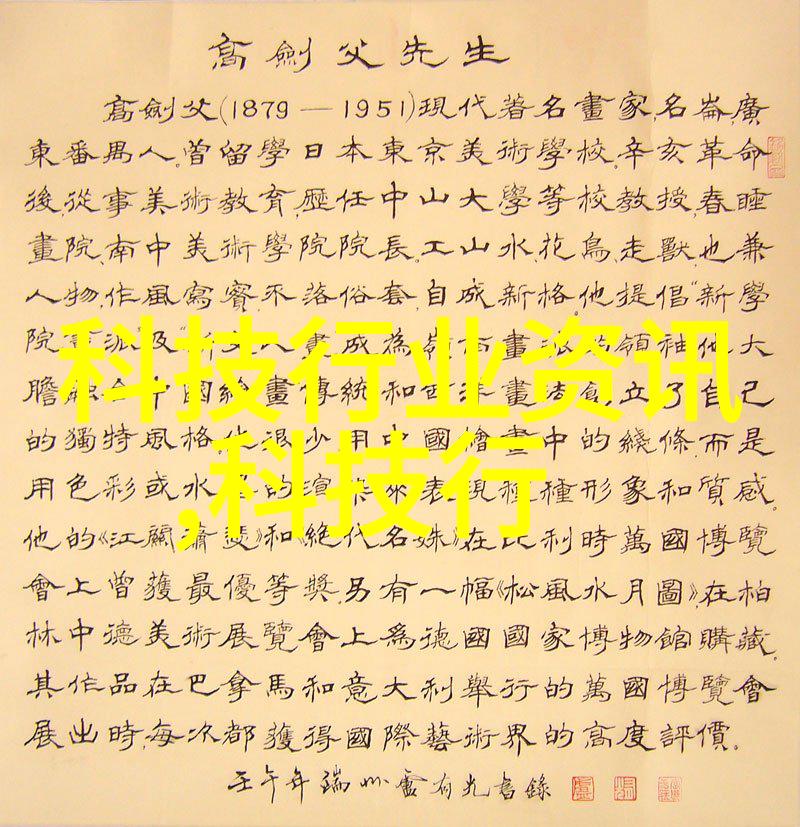 高劍父先生
高劍父(1879—1951)現代著名畫家,名崙,廣
東番禺人。曾留學日本東京美術學校,辛亥革命
後,從事美術教育,歷任中山大學等校教授,春睡
畫院、南中美術學院院長。工山水、花鳥、走獸,也兼
人物,作風寫實,不落俗套,自成新格。他提倡“新學
院畫派”及“新文人畫”成為嶺南畫派的領袖。他大
膽融合中國繪畫傳統和西洋畫法,創立了自己
的獨特風格。他很少用中國繪畫中的綫條,而是
用色彩或水墨的渲
表現種種形象和質感。
他的《江關蕭瑟》和《絕代名姝》在比利時萬國博覽
會上曾獲最優等獎。另有一幅《松風水月圖》,在柏
林中德美術展覽會上為德國國家博物館購藏。
其作品在巴拿馬和意大利舉行的萬國博覽會
展出時,每次都獲得國際藝術界的高度評價。
壬午年端州盧有光書錄
科技行业资讯
,科技行